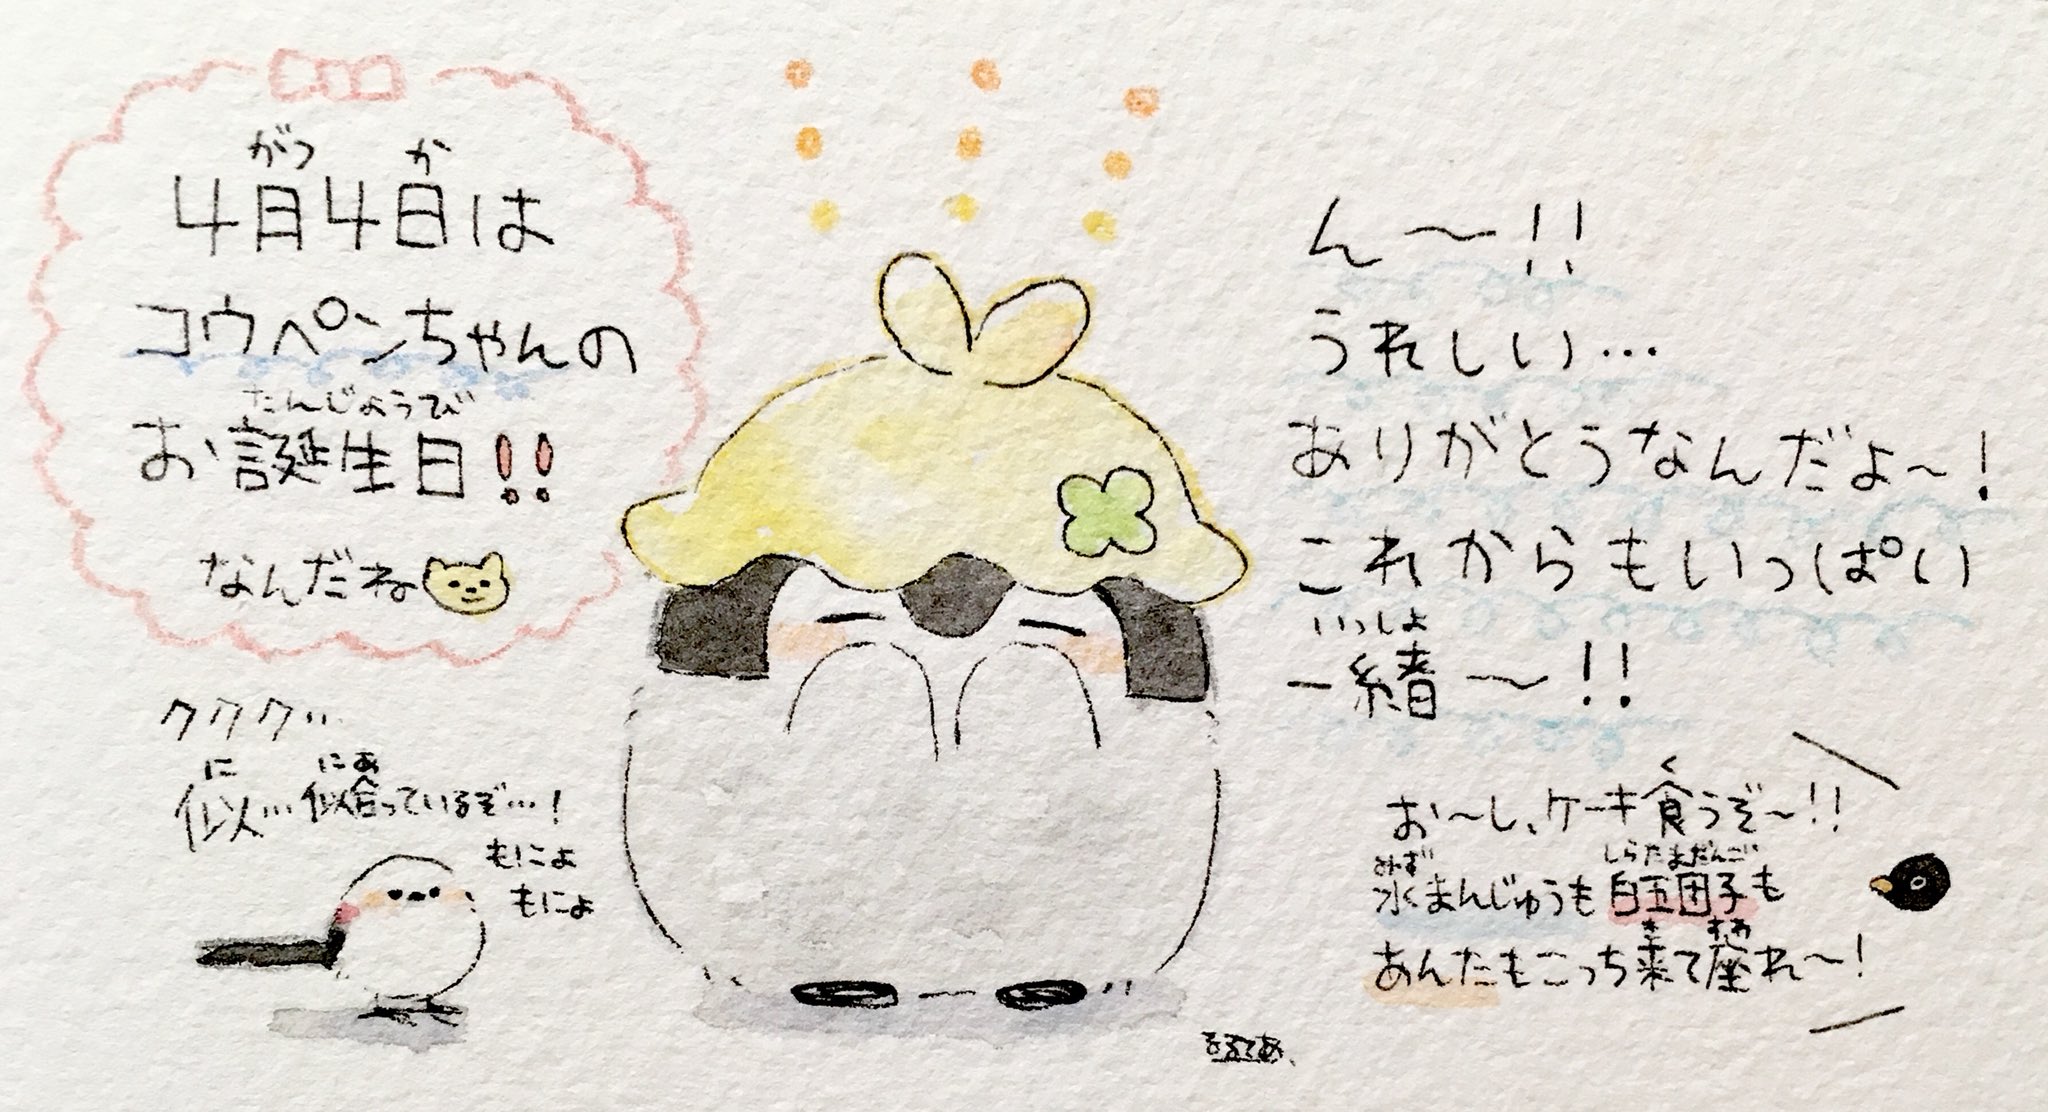 4月4日は
コウペンちゃんの
お誕生日!!
なんだね
ん〜!!
うれしい…
ありがとうなんだよ〜!
これからもいっぱい
一緒〜!!
ククク…
似…似合っているぞ…!
もにょ
もにょ
お〜し、ケーキ食うぞ〜!!
水まんじゅうも白玉団子も
あんたもこっち来て座れ〜!
るるてあ